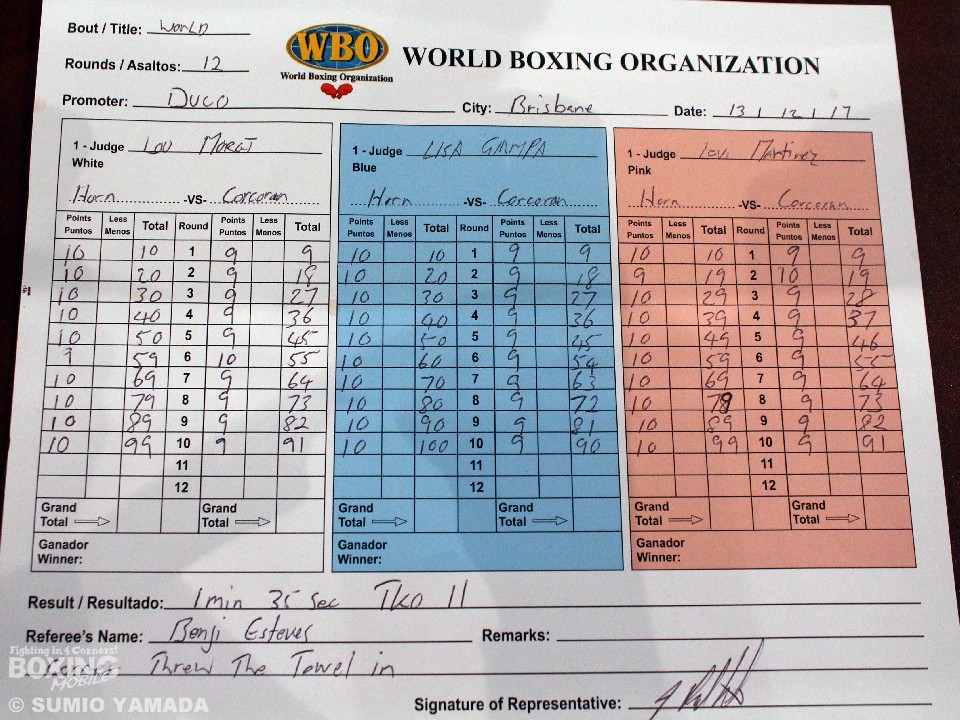 Bout / Title: World
Rounds / Asaltos: 12
WBO
World Boxing Organization
WORLD BOXING ORGANIZATION
Promoter: Duco City: Brisbane Date: 13 / 12 / 17
1 - Judge Lou MORET 1 - Judge LISA GIAMPA 1 - Judge Levi Martinez
White Blue Pink
Horn -VS- Corcoran Horn -VS- Corcoran Horn -VS- Corcoran
Points Less Total Round Points Less Total Points Less Total Round Points Less Total Points Less Total Round Points Less Total
Puntos Menos Puntos Menos Puntos Menos Puntos Menos Puntos Menos Puntos Menos
10 10 1 9 9 10 10 1 9 9 10 10 1 9 9
10 20 2 9 18 10 20 2 9 18 9 19 2 10 19
10 30 3 9 27 10 30 3 9 27 10 29 3 9 28
10 40 4 9 36 10 40 4 9 36 10 39 4 9 37
10 50 5 9 45 10 50 5 9 45 10 49 5 9 46
9 59 6 10 55 10 60 6 9 54 10 59 6 9 55
10 69 7 9 64 10 70 7 9 63 10 69 7 9 64
10 79 8 9 73 10 80 8 9 72 10 79 8 9 73
10 89 9 9 82 10 90 9 9 81 10 89 9 9 82
10 99 10 9 91 10 100 10 9 90 10 99 10 9 91
11 11 11
12 12 12
Grand Grand Grand Grand Grand Grand
Total Total Total Total Total Total
Ganador Ganador Ganador
Winner: Winner: Winner:
Result / Resultado: 1 min 35 sec TKO 11
Referee's Name: Benji Esteves Remarks:
Threw The Towel in
Fighting in 4 Corners!
BOXING
MOBILES
Signature of Representative:
© SUMIO YAMADA